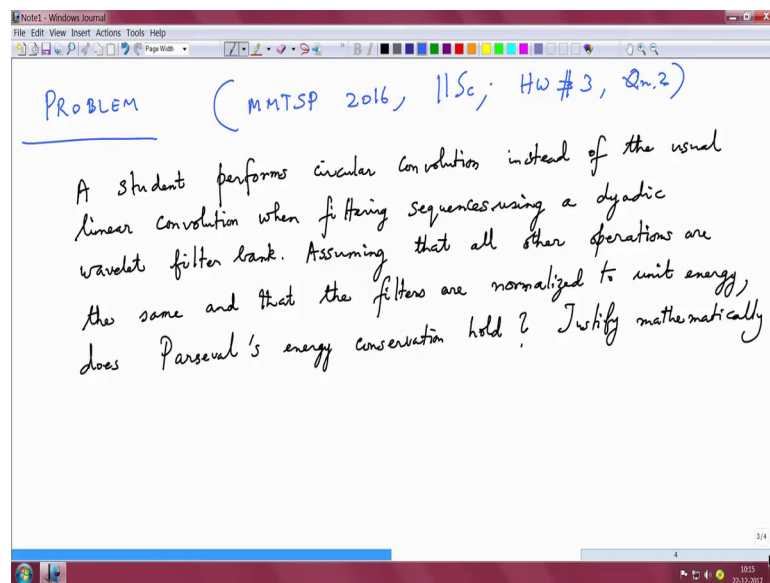 Note1 - Windows Journal
File Edit View Insert Actions Tools Help
Page Width
PROBLEM (MMTSP 2016, IISc; HW #3, Qn.2)
A student performs circular convolution instead of the usual
linear convolution when filtering sequences using a dyadic
wavelet filter bank. Assuming that all other operations are
the same and that the filters are normalized to unit energy,
does Parseval's energy conservation hold? Justify mathematically
3/4
4
10:15
22-12-2017